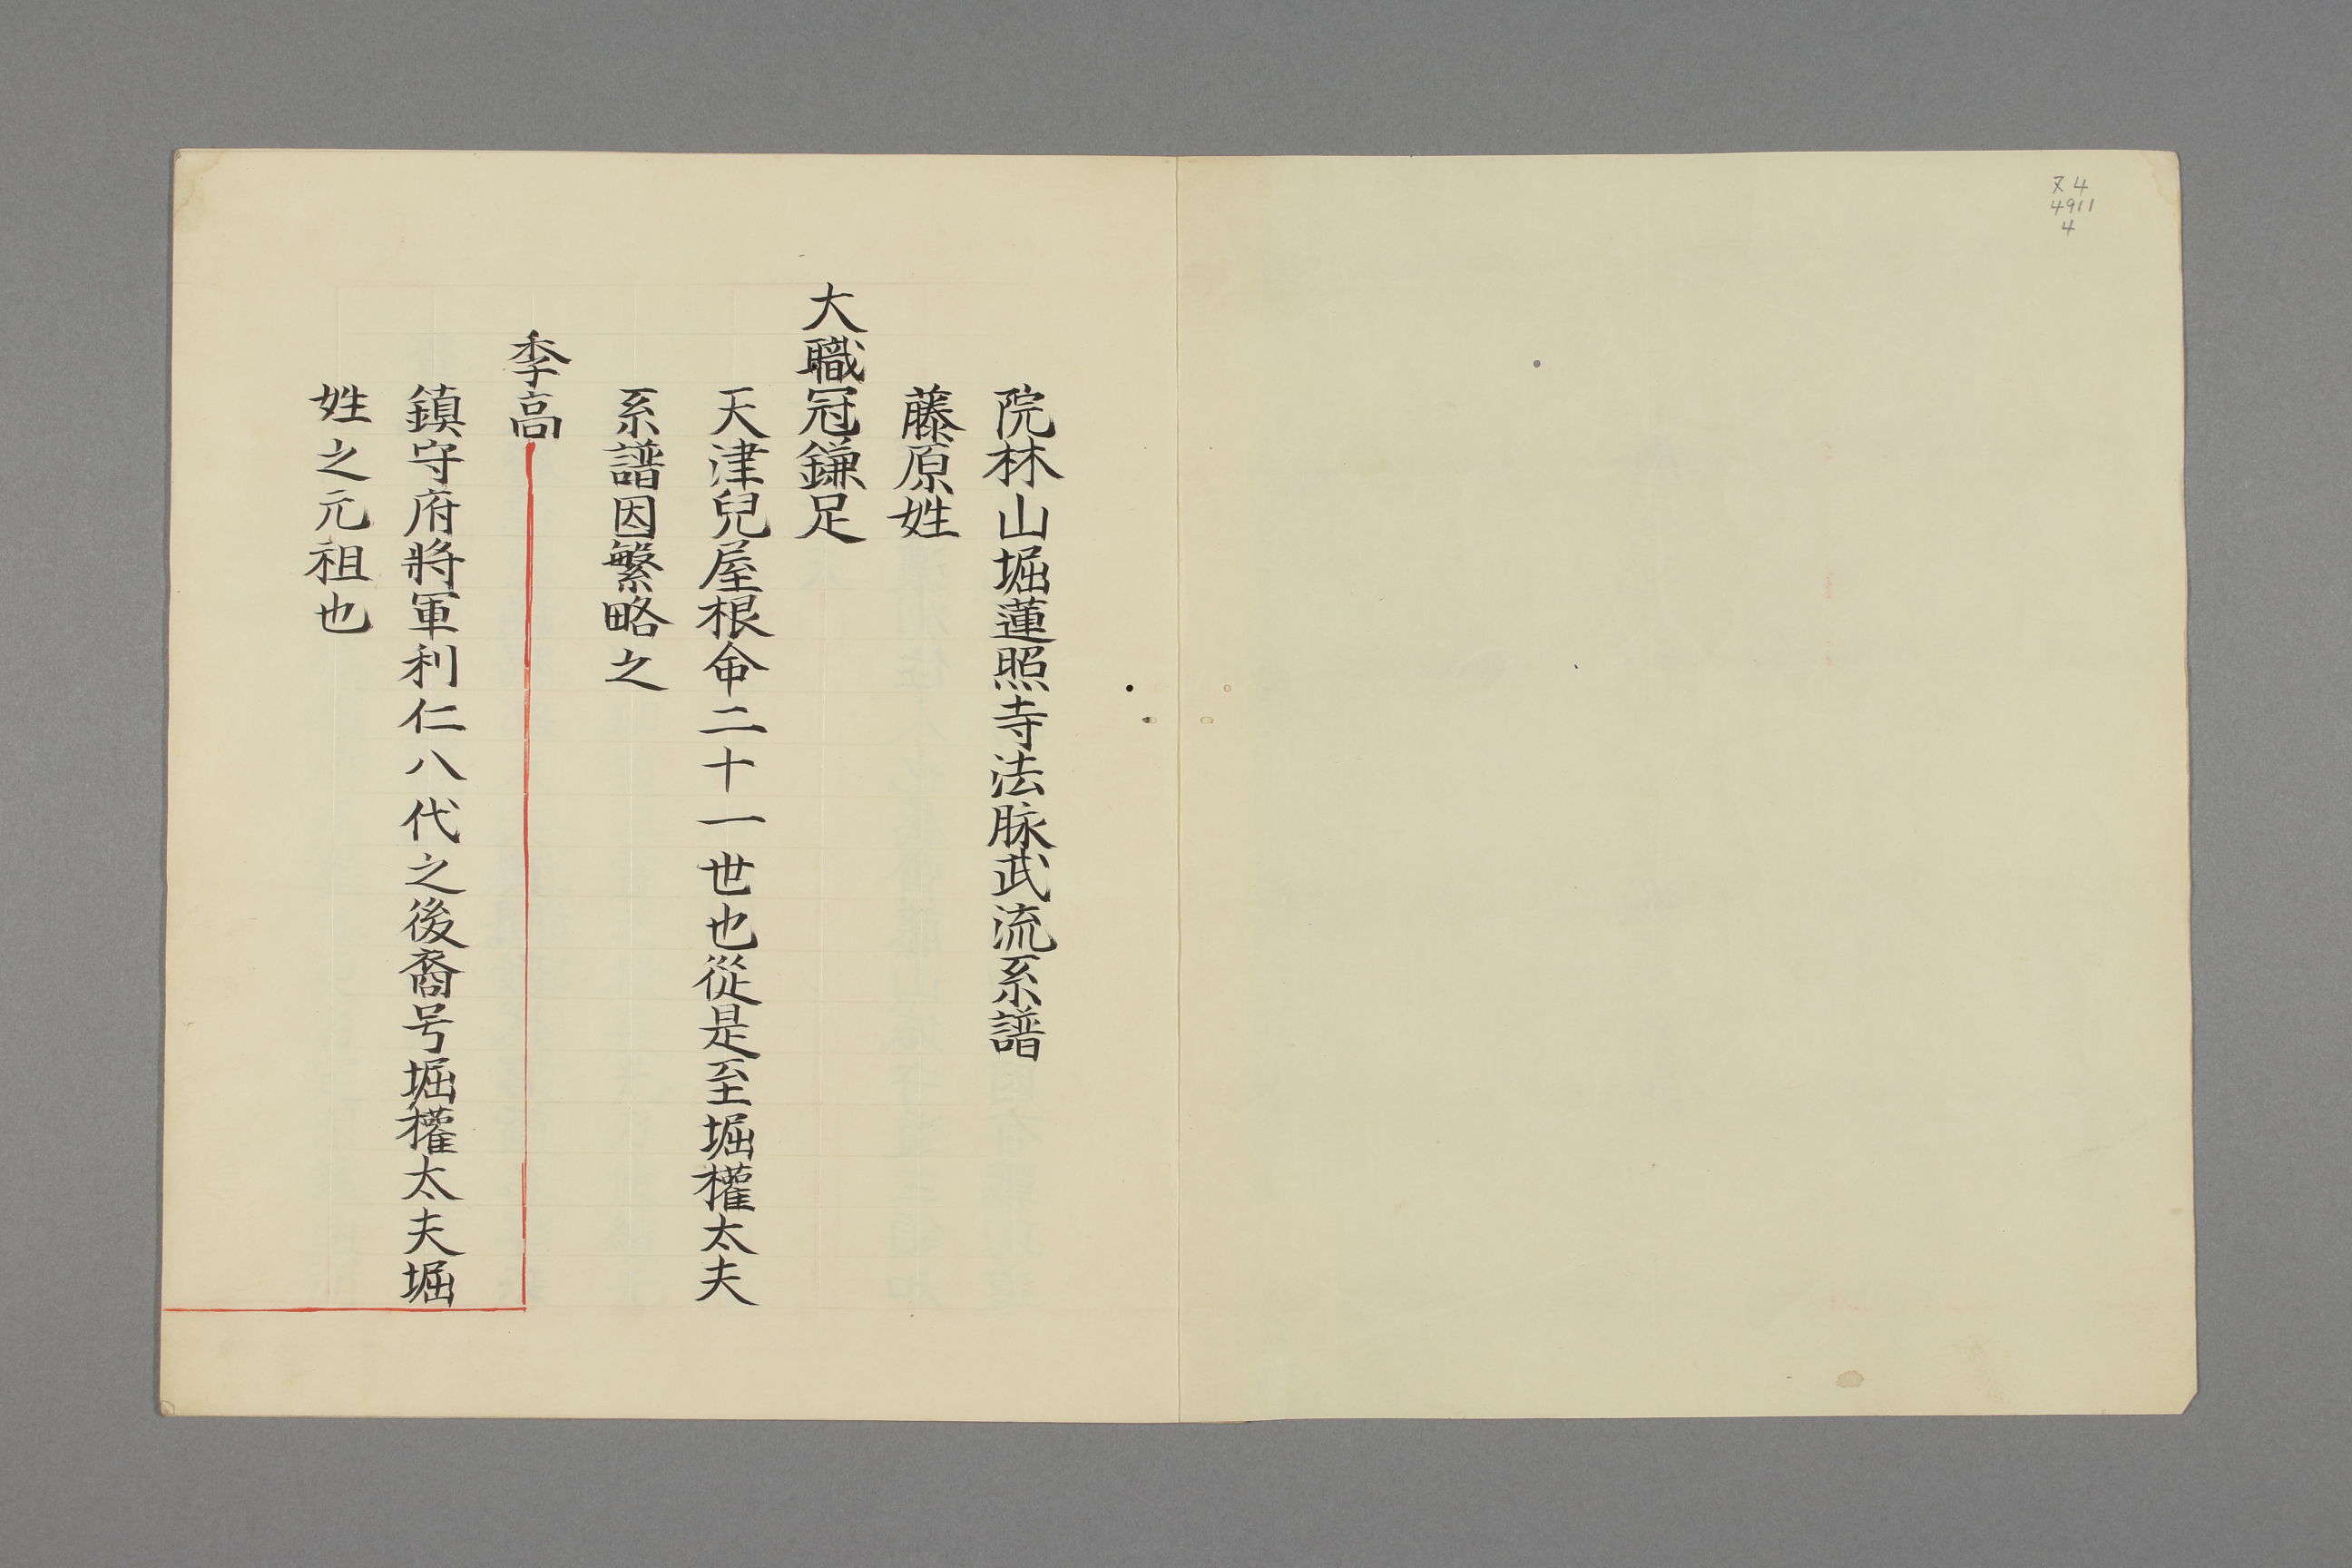 ヌ4
4911
4
院林山堀蓮照寺法脉武流系譜
藤原姓
大職冠鎌足
天津兒屋根命二十一世也從是至堀權太夫
系譜因繁略之
季高
鎮守府將軍利仁八代之後裔号堀權太夫堀
姓之元祖也